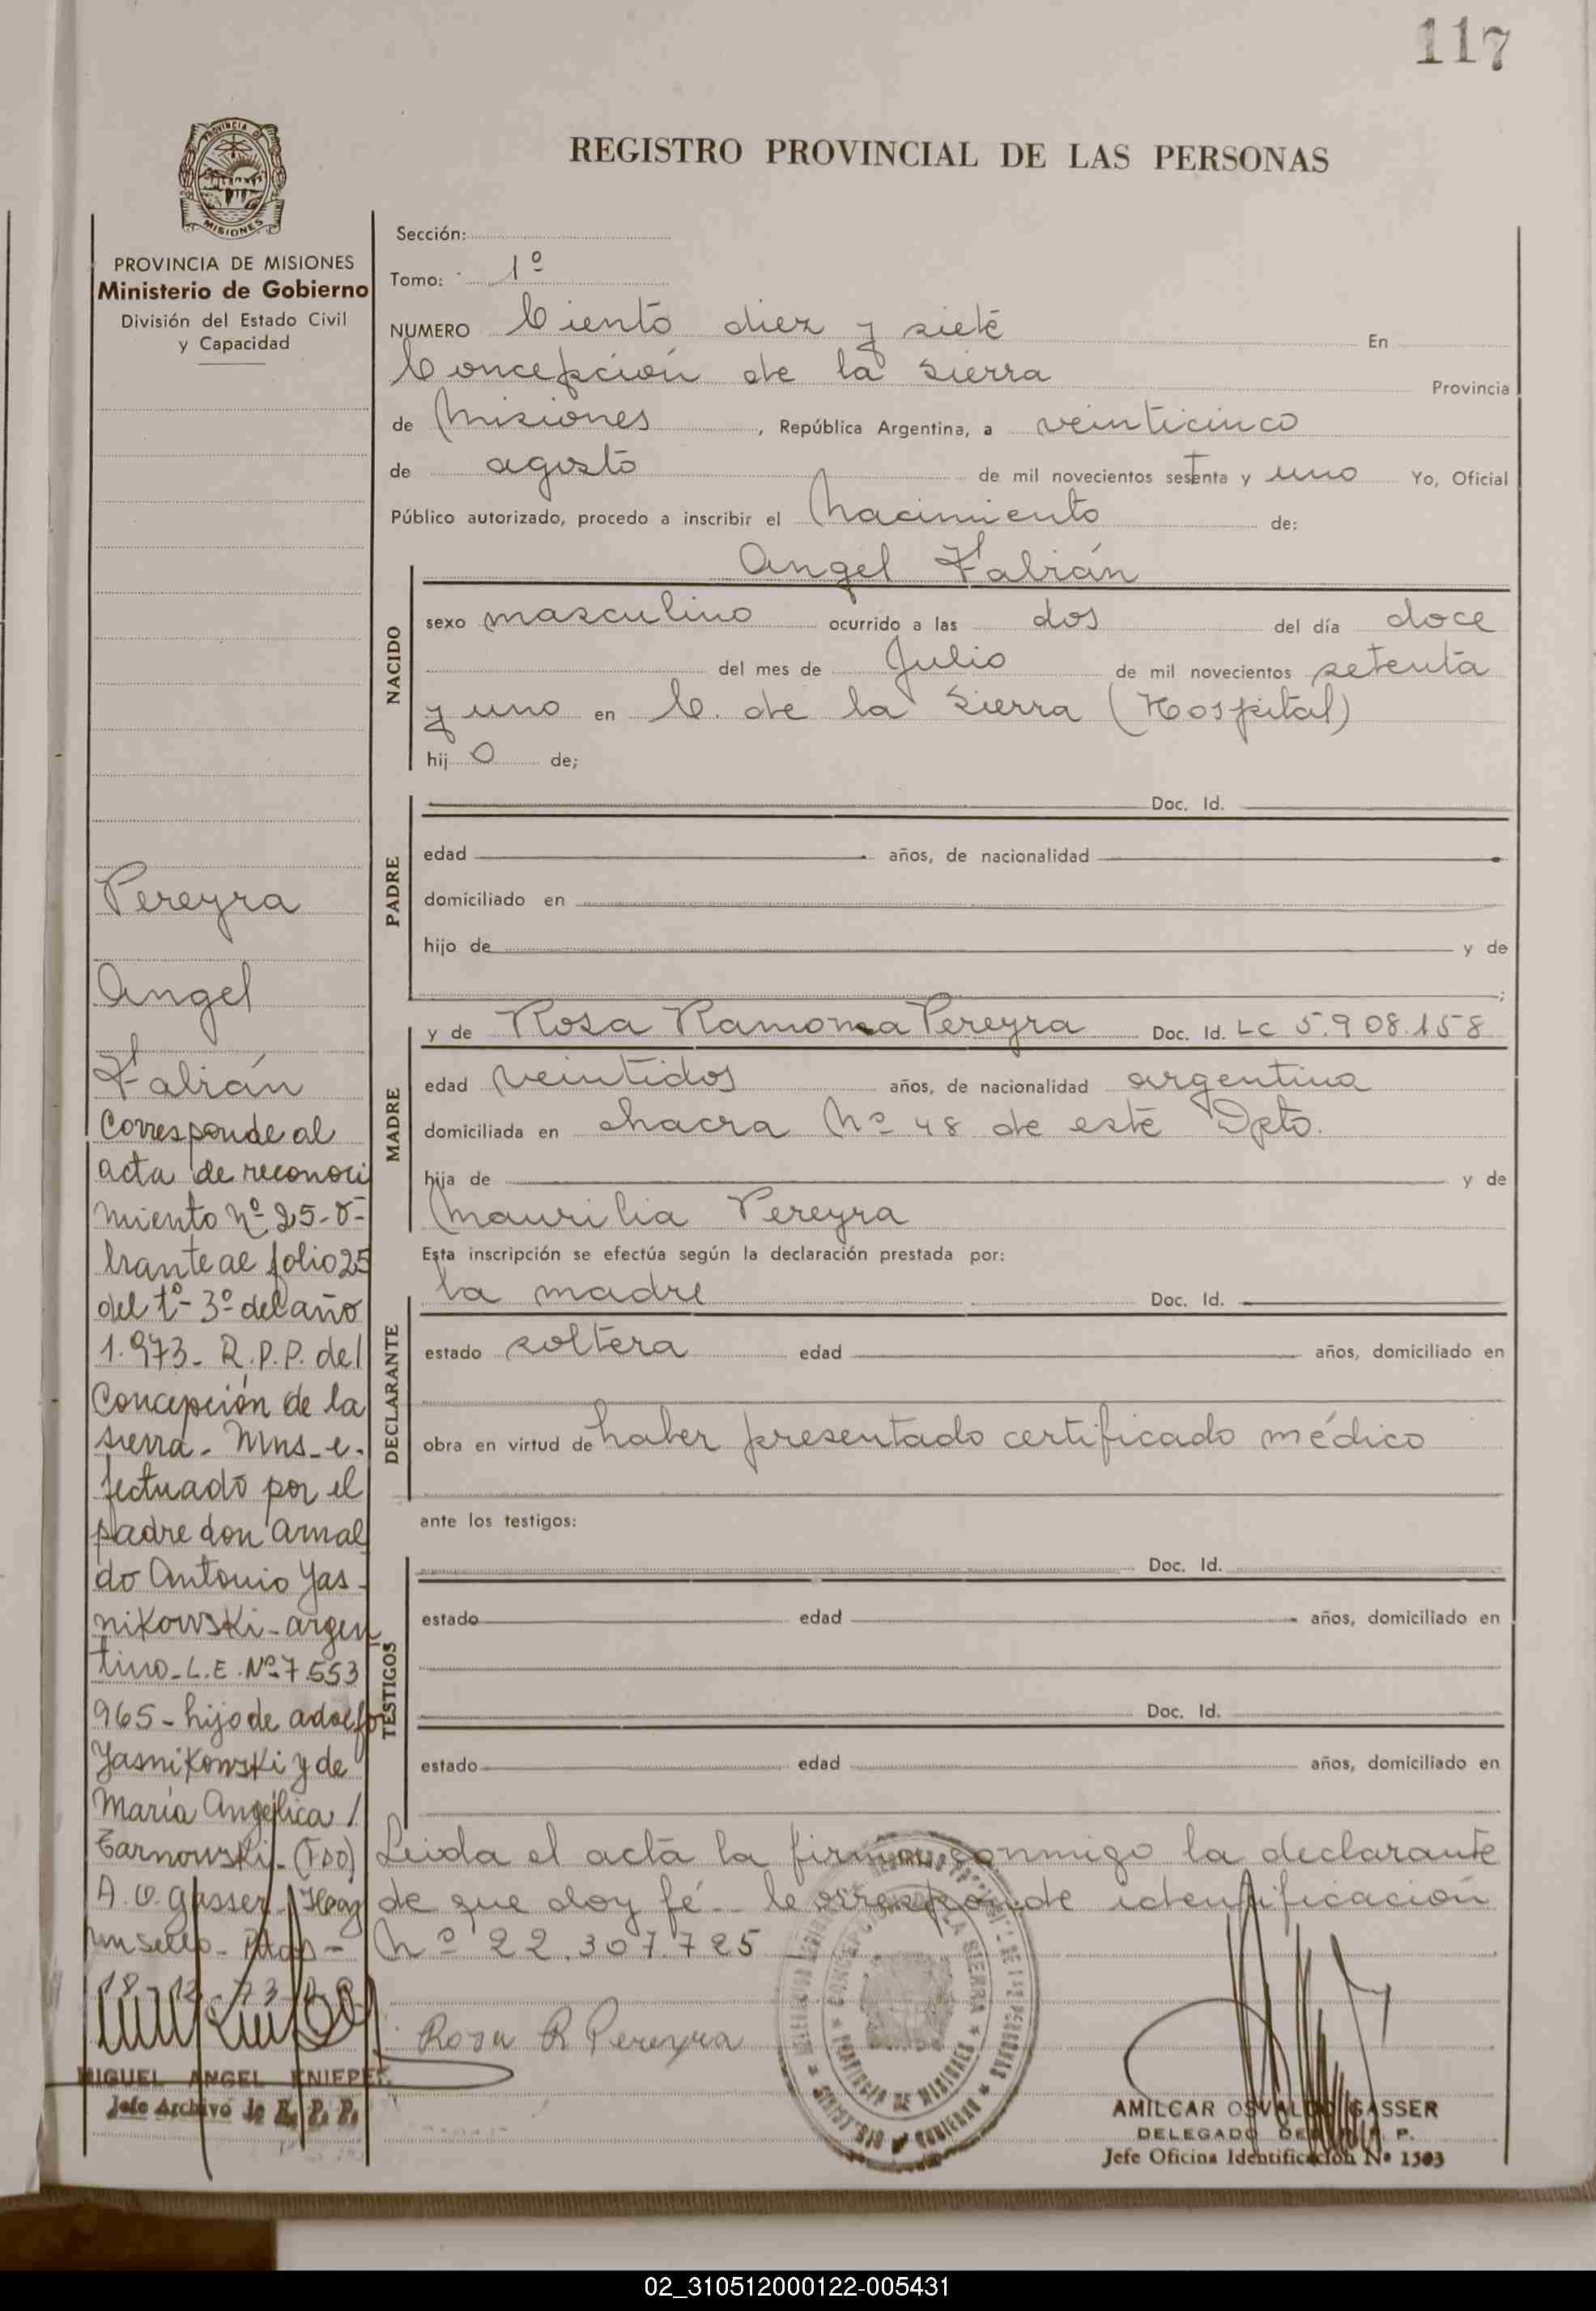 117
REGISTRO PROVINCIAL DE LAS PERSONAS
PROVINCIA DE
MISIONES
PROVINCIA DE MISIONES
Ministerio de Gobierno
División del Estado Civil
y Capacidad
Pereyra
Angel
Fabián
Corresponde al
acta de reconoci
miento nº 25-o-
brante al folio 25
del tº- 3º del año
1.973- R.P.P. de
Concepción de la
sierra. Mns-e-
fectuado por el
padre don Arnal
do Antonio Yas-
nikowski-argen
tino-L.E.Nº-7.553
965-hijo de adolfo
Yasnikowski y de
María Angélica /
Tarnowski-(FDO)
A.O. Gasser- Hay
un sello- Pdas-
18-12-73-
MIGUEL ANGEL KNIEPE
Jefe Archivo de R. P. P.
Sección:
Tomo: 1º
NUMERO Ciento diez y siete En
Concepción de la Sierra Provincia
de Misiones, República Argentina, a veinticinco
de agosto de mil novecientos setenta y uno Yo, Oficial
Público autorizado, procedo a inscribir el Nacimiento de:
Angel Fabián
NACIDO
sexo masculino ocurrido a las dos del día doce
del mes de Julio de mil novecientos setenta
y uno en C. de la Sierra (Hospital)
hijo de;
PADRE
Doc. Id.
edad años, de nacionalidad
domiciliado en
hijo de y de
;
MADRE
y de Rosa Ramona Pereyra Doc. Id. LC 5.908.158
edad veintidos años, de nacionalidad argentina
domiciliada en chacra Nº 48 de este Dpto.
hija de y de
Maurilia Pereyra
Esta inscripción se efectúa según la declaración prestada por:
DECLARANTE
la madre Doc. Id.
estado soltera edad años, domiciliado en
obra en virtud de haber presentado certificado médico
ante los testigos:
TESTIGOS
Doc. Id.
estado edad años, domiciliado en
Doc. Id.
estado edad años, domiciliado en
Leida el acta la firma conmigo la declarante
de que doy fé.- le corresponde identificación
Nº 22.307.725
Rosa R Pereyra
CONCEPCION DE LA SIERRA
PROVINCIA DE MISIONES
AMILCAR OSVALDO GASSER
DELEGADO DEL R. P. P.
Jefe Oficina Identificación Nº 1303
02_310512000122-005431